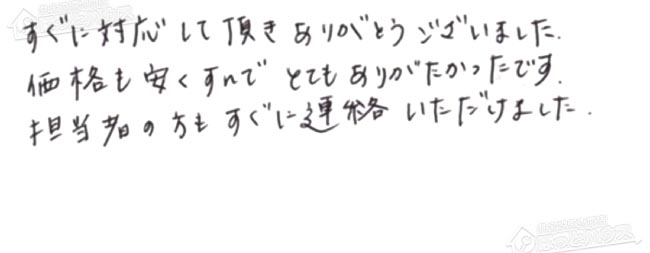 すぐに対応して頂きありがとうございました.
価格も安くすんでとてもありがたかったです.
担当者の方もすぐに連絡いただけました.